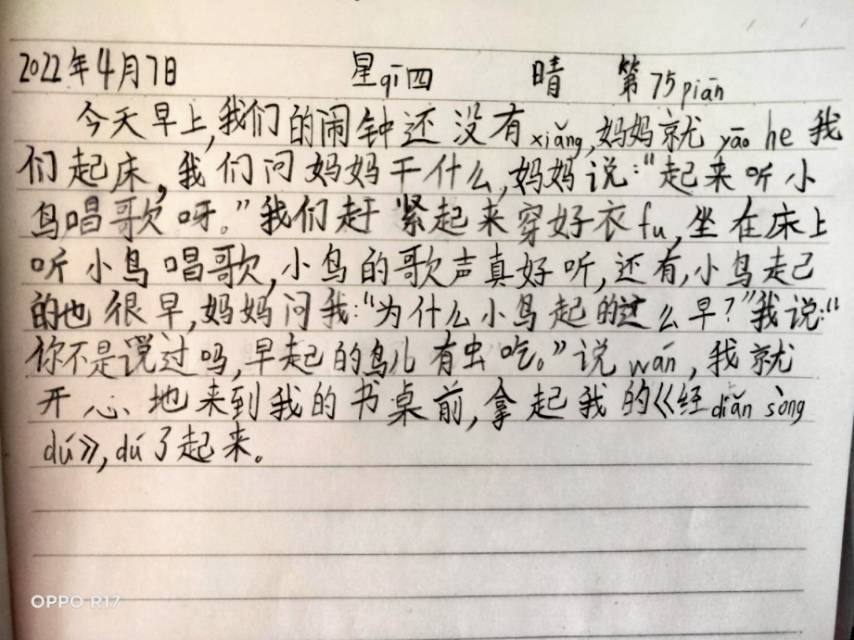 2022年4月7日 星qī四 晴 第75piān
今天早上,我们的闹钟还没有xiǎng,妈妈就yāo he我
们起床,我们问妈妈干什么,妈妈说:“起来听小
鸟唱歌呀。”我们赶紧起来穿好衣fu,坐在床上
听小鸟唱歌,小鸟的歌声真好听,还有,小鸟起
的也很早,妈妈问我:“为什么小鸟起的这么早?”我说:“
你不是说过吗,早起的鸟儿有虫吃。”说wán,我就
开心地来到我的书桌前,拿起我的《经diǎn sòng
dú》,dú了起来。
OPPO R17